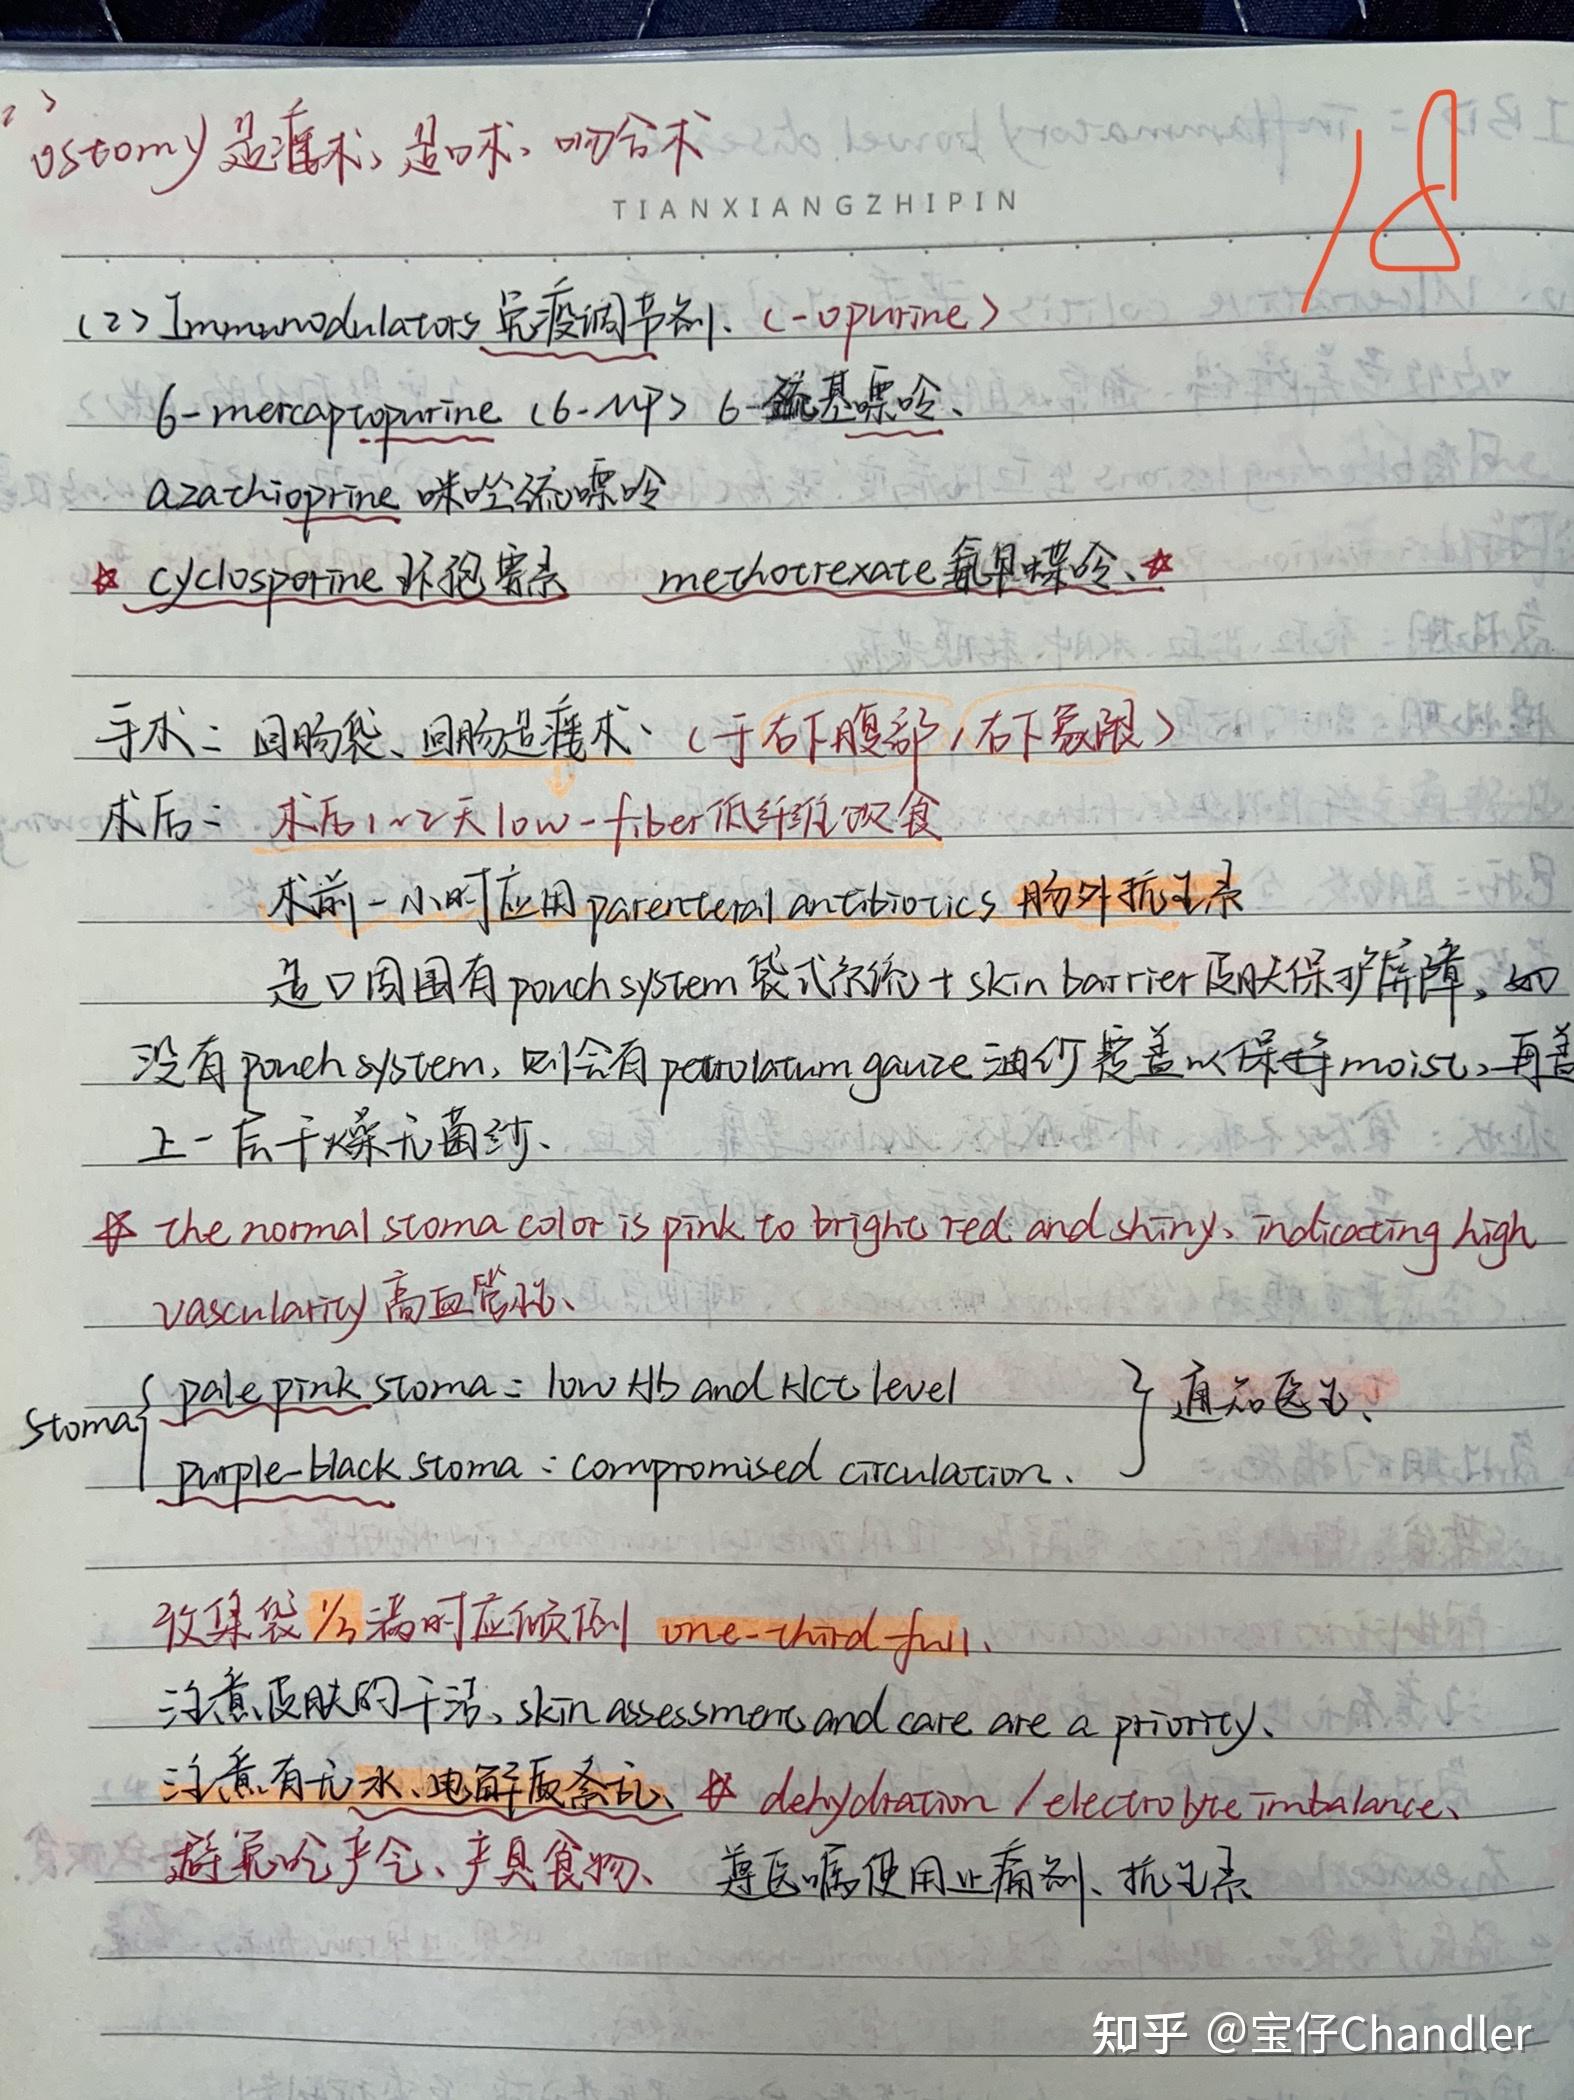 ostomy 造瘘术、造口术、吻合术
TIANXIANGZHIPIN
18
(2) Immunodulators 免疫调节剂、(-opurine)
6-mercaptopurine (6-MP) 6-巯基嘌呤、
azathioprine 咪唑硫嘌呤
☆ cyclosporine 环孢霉素 methotrexate 氨甲喋呤、☆
手术：回肠袋、回肠造瘘术、(于右下腹部/右下象限)
术后：术后1~2天low-fiber低纤维饮食
术前一小时应用parenteral antibiotics 肠外抗生素
造口周围有pouch system 袋式系统+skin barrier皮肤保护屏障，如
没有pouch system，则会有petrolatum gauze油纱覆盖以保持moist、再盖
上一层干燥无菌纱、
☆ the normal stoma color is pink to bright red and shiny、indicating high
vascularity高血管化、
stoma { pale pink stoma：low Hb and Hct level
purple-black stoma：compromised circulation. } 通知医生、
收集袋1/3满时应倾倒 one-third full、
注意皮肤的干洁、skin assessment and care are a priority、
注意有无水、电解质紊乱、☆ dehydration / electrolyte imbalance、
避免吃产气、产臭食物、 遵医嘱使用止痛剂、抗生素
知乎 @宝仔Chandler